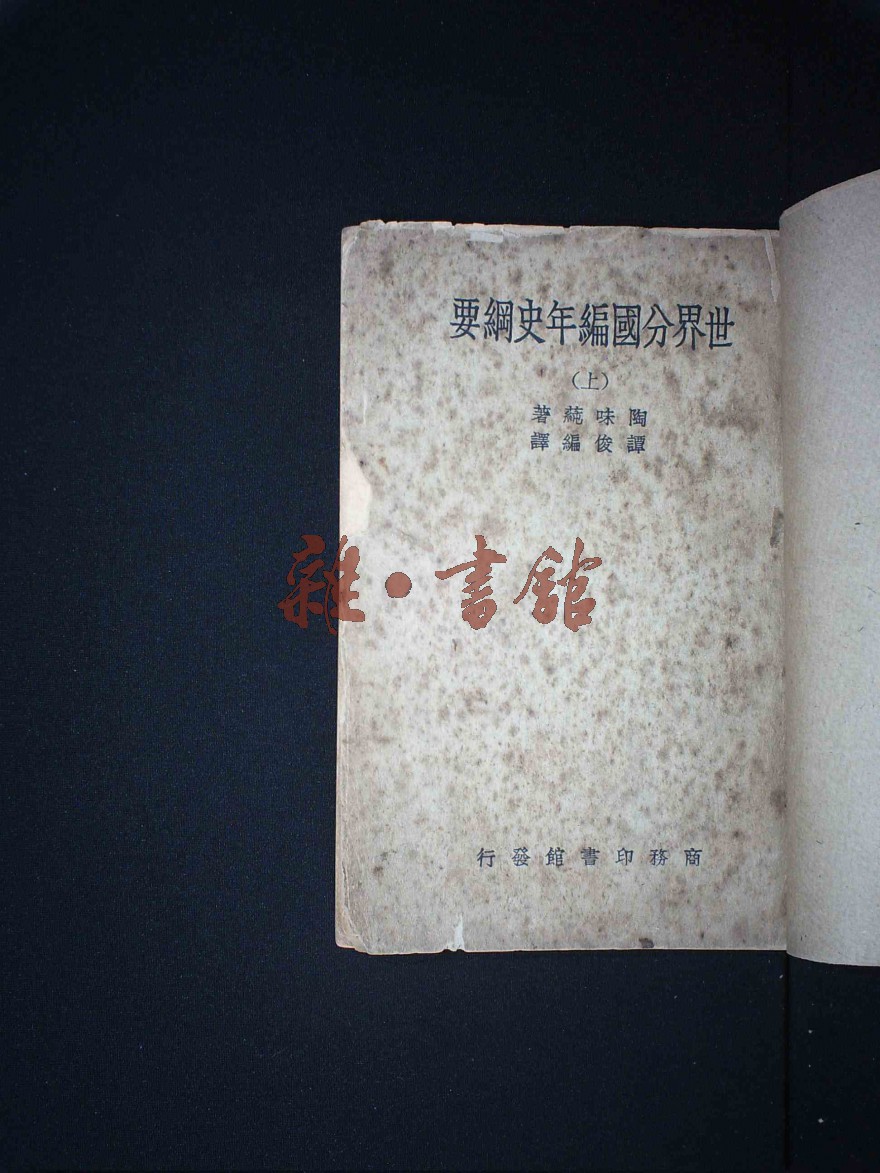 世界分國編年史綱要
(上)
陶味蒓著
譚俊編譯
雜·書館
商務印書館發行